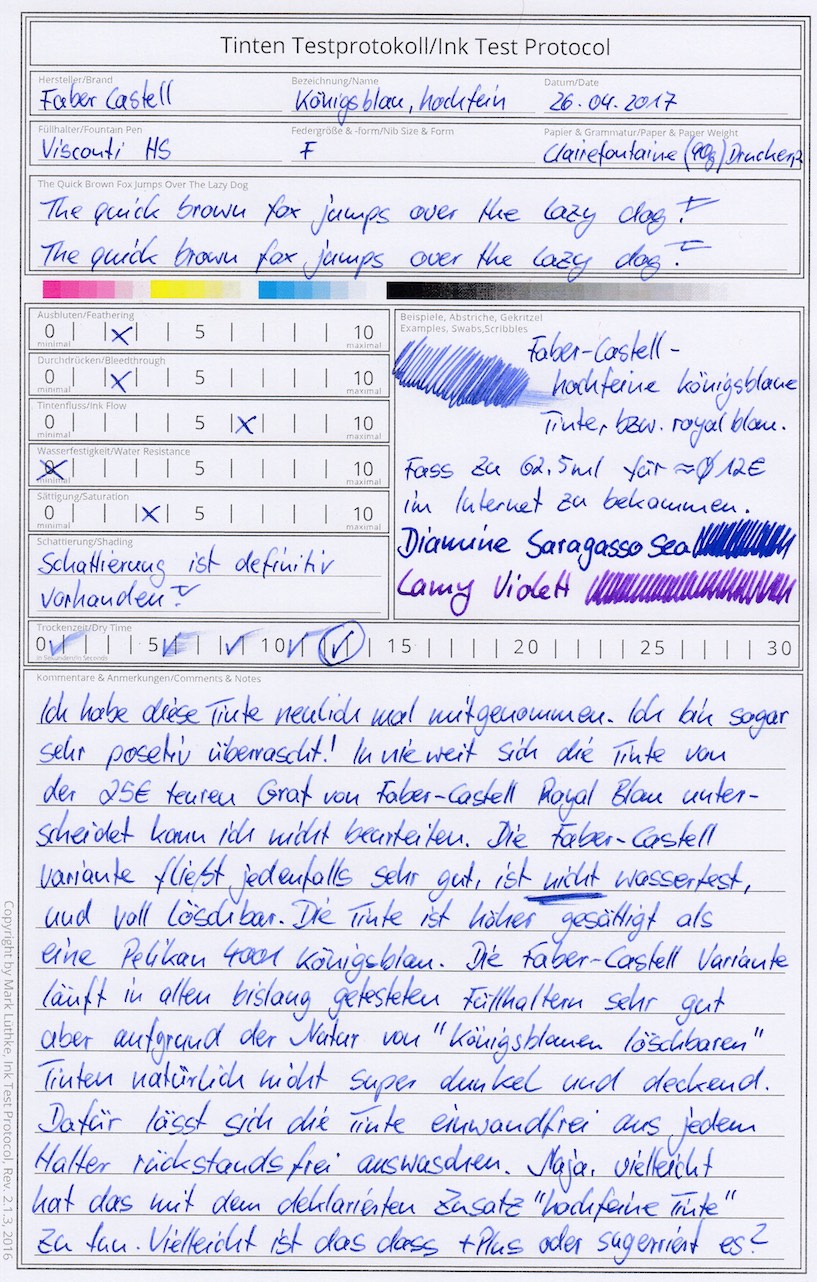 Tinten Testprotokoll/Ink Test Protocol
Hersteller/Brand
Faber Castell
Bezeichnung/Name
Königsblau, hochfein
Datum/Date
26.04.2017
Füllhalter/Fountain Pen
Visconti HS
Federgröße & -form/Nib Size & Form
F
Papier & Grammatur/Paper & Paper Weight
Clairefontaine (90g) Druckerp.
The Quick Brown Fox Jumps Over The Lazy Dog
The quick brown fox jumps over the lazy dog!
The quick brown fox jumps over the lazy dog!
Ausbluten/Feathering
0 5 10
minimal maximal
Durchdrücken/Bleedthrough
0 5 10
minimal maximal
Tintenfluss/Ink Flow
0 5 10
minimal maximal
Wasserfestigkeit/Water Resistance
0 5 10
minimal maximal
Sättigung/Saturation
0 5 10
minimal maximal
Schattierung/Shading
Schattierung ist definitiv
vorhanden!
Beispiele, Abstriche, Gekritzel
Examples, Swabs,Scribbles
Faber-Castell-
hochfeine königsblaue
Tinte, bzw. royal blau.
Fass zu 62,5ml für ≈Ø 12€
im Internet zu bekommen.
Diamine Saragasso Sea
Lamy Violett
Trockenzeit/Dry Time
0 5 10 15 20 25 30
in Sekunden/in Seconds
Kommentare & Anmerkungen/Comments & Notes
Ich habe diese Tinte neulich mal mitgenommen. Ich bin sogar
sehr posetiv überrascht! In wie weit sich die Tinte von
der 25€ teuren Graf von Faber-Castell Royal Blau unter-
scheidet kann ich nicht beurteilen. Die Faber-Castell
variante fließt jedenfalls sehr gut, ist nicht wasserfest,
und voll löschbar. Die Tinte ist höher gesättigt als
eine Pelikan 4001 Königsblau. Die Faber-Castell Variante
läuft in allen bislang getesteten Füllhaltern sehr gut
aber aufgrund der Natur von "Königsblauen löschbaren"
Tinten natürlich nicht super dunkel und deckend.
Dafür lässt sich die Tinte einwandfrei aus jedem
Halter rückstandsfrei auswaschen. Naja, vielleicht
hat das mit dem deklarierten Zusatz "hochfeine Tinte"
zu tun. Vielleicht ist das dass +Plus oder sugerriert es?
Copyright by Mark Lüthke, Ink Test Protocol, Rev. 2.1.3, 2016